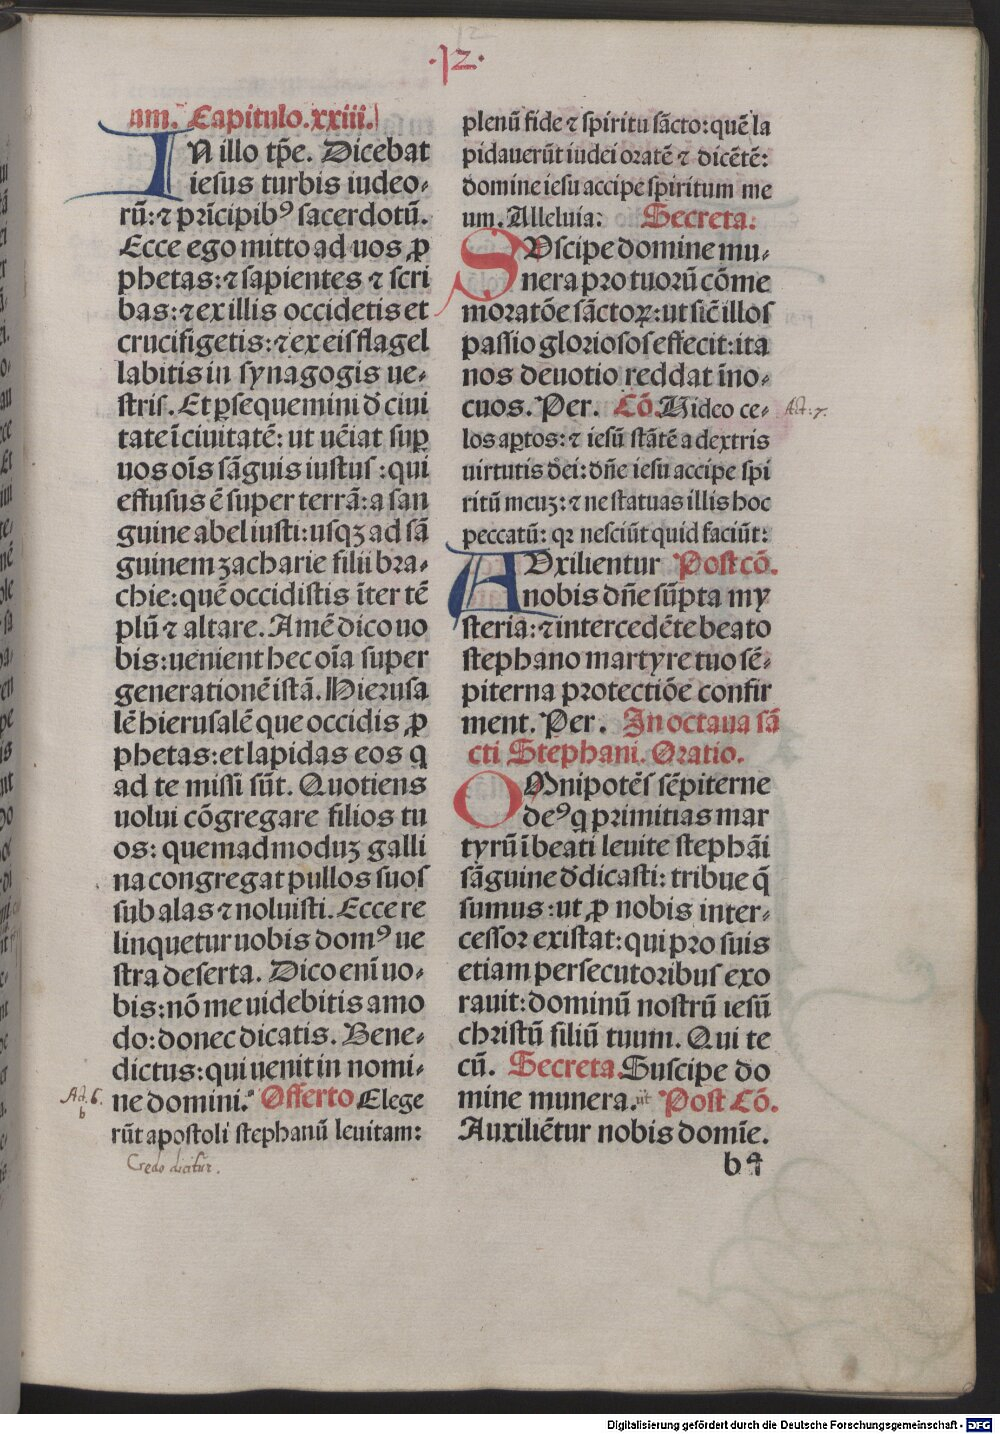 .12.
um. Capitulo.xxiii.
IN illo tp̄e. Dicebat
iesus turbis iudeo-
rū: ⁊ prīcipibꝰ sacerdotū.
Ecce ego mitto ad uos ꝓ
phetas: ⁊ sapientes ⁊ scri
bas: ⁊ ex illis occidetis et
crucifigetis: ⁊ ex eis flagel
labitis in synagogis ue-
stris. Et ꝑsequemini ð ciui
tate ī ciuitatē: ut uēiat suꝑ
uos oīs sāguis iustus: qui
effusus ē super terrā: a san
guine abel iusti: usqꝫ ad sā
guinem zacharie filii bra-
chie: quē occidistis īter tē
plū ⁊ altare. Amē dico uo
bis: uenient hec oīa super
generationē istā. Hierusa
lē hierusalē que occidis ꝓ
phetas: et lapidas eos q
ad te missi sūt. Quotiens
uolui cōgregare filios tu
os: quemadmoduꝫ galli
na congregat pullos suos
sub alas ⁊ noluisti. Ecce re
linquetur uobis domꝰ ue
stra deserta. Dico enī uo-
bis: nō me uidebitis amo
do: donec dicatis. Bene-
dictus: qui uenit in nomi-
ne domini. Offerto Elege
rūt apostoli stephanū leuitam:
Act. 6.
b
Credo dicitur.
plenū fide ⁊ spiritu sācto: quē la
pidauerūt iudei oratē ⁊ dicētē:
domine iesu accipe spiritum me
um. Alleluia: Secreta:
SVscipe domine mu-
nera pro tuorū cōme
moratōe sāctoꝝ: ut sic̄ illos
passio gloriosos effecit: ita
nos deuotio reddat īno-
cuos. Per. Cō. Video ce-
los aꝑtos: ⁊ iesū stātē a dextris
uirtutis dei: dn̄e iesu accipe spi
ritū meuꝫ: ⁊ ne statuas illis hoc
peccatū: qꝛ nesciūt quid faciūt:
Act. 7.
AVxilientur Post cō.
nobis dn̄e sūpta my
steria: ⁊ intercedēte beato
stephano martyre tuo sē-
piterna protectiōe confir
ment. Per. In octaua sā
cti Stephani. Oratio.
OMnipotēs sēpiterne
deꝰ q primitias mar
tyrū ī beati leuite stephāi
sāguine ðdicasti: tribue q̄
sumus: ut ꝓ nobis inter-
cessor existat: qui pro suis
etiam persecutoribus exo
rauit: dominū nostrū iesū
christū filiū tuum. Qui te
cū. Secreta Suscipe do
mine munera. ut Post Cō.
Auxiliētur nobis domīe.
b 4
Digitalisierung gefördert durch die Deutsche Forschungsgemeinschaft - DFG